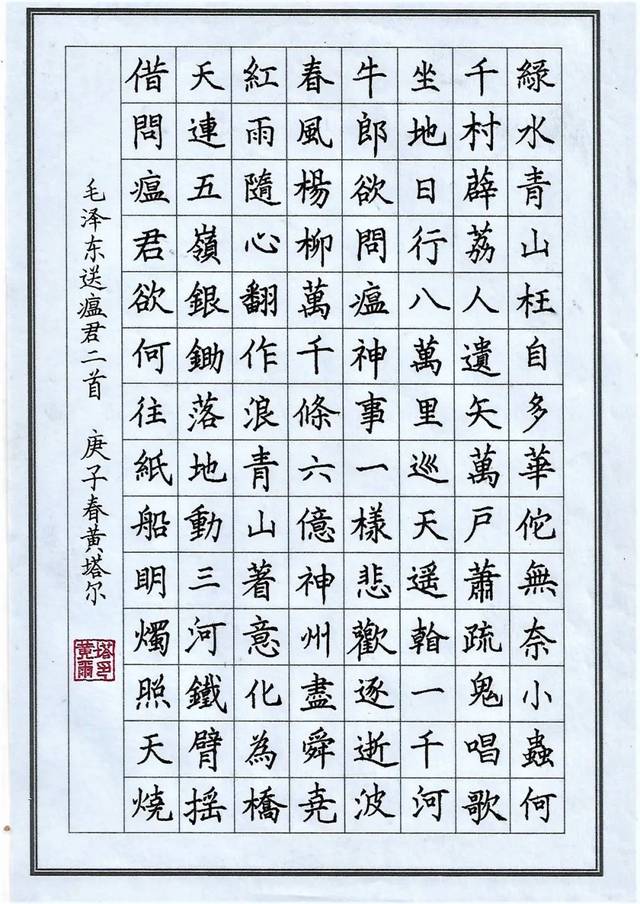 綠水青山枉自多華佗無奈小蟲何
千村薜荔人遺矢萬戶蕭疏鬼唱歌
坐地日行八萬里巡天遙看一千河
牛郎欲問瘟神事一樣悲歡逐逝波
春風楊柳萬千條六億神州盡舜堯
紅雨隨心翻作浪青山著意化為橋
天連五嶺銀鋤落地動三河鐵臂搖
借問瘟君欲何往紙船明燭照天燒
毛泽东送瘟君二首 庚子春黄塔尔